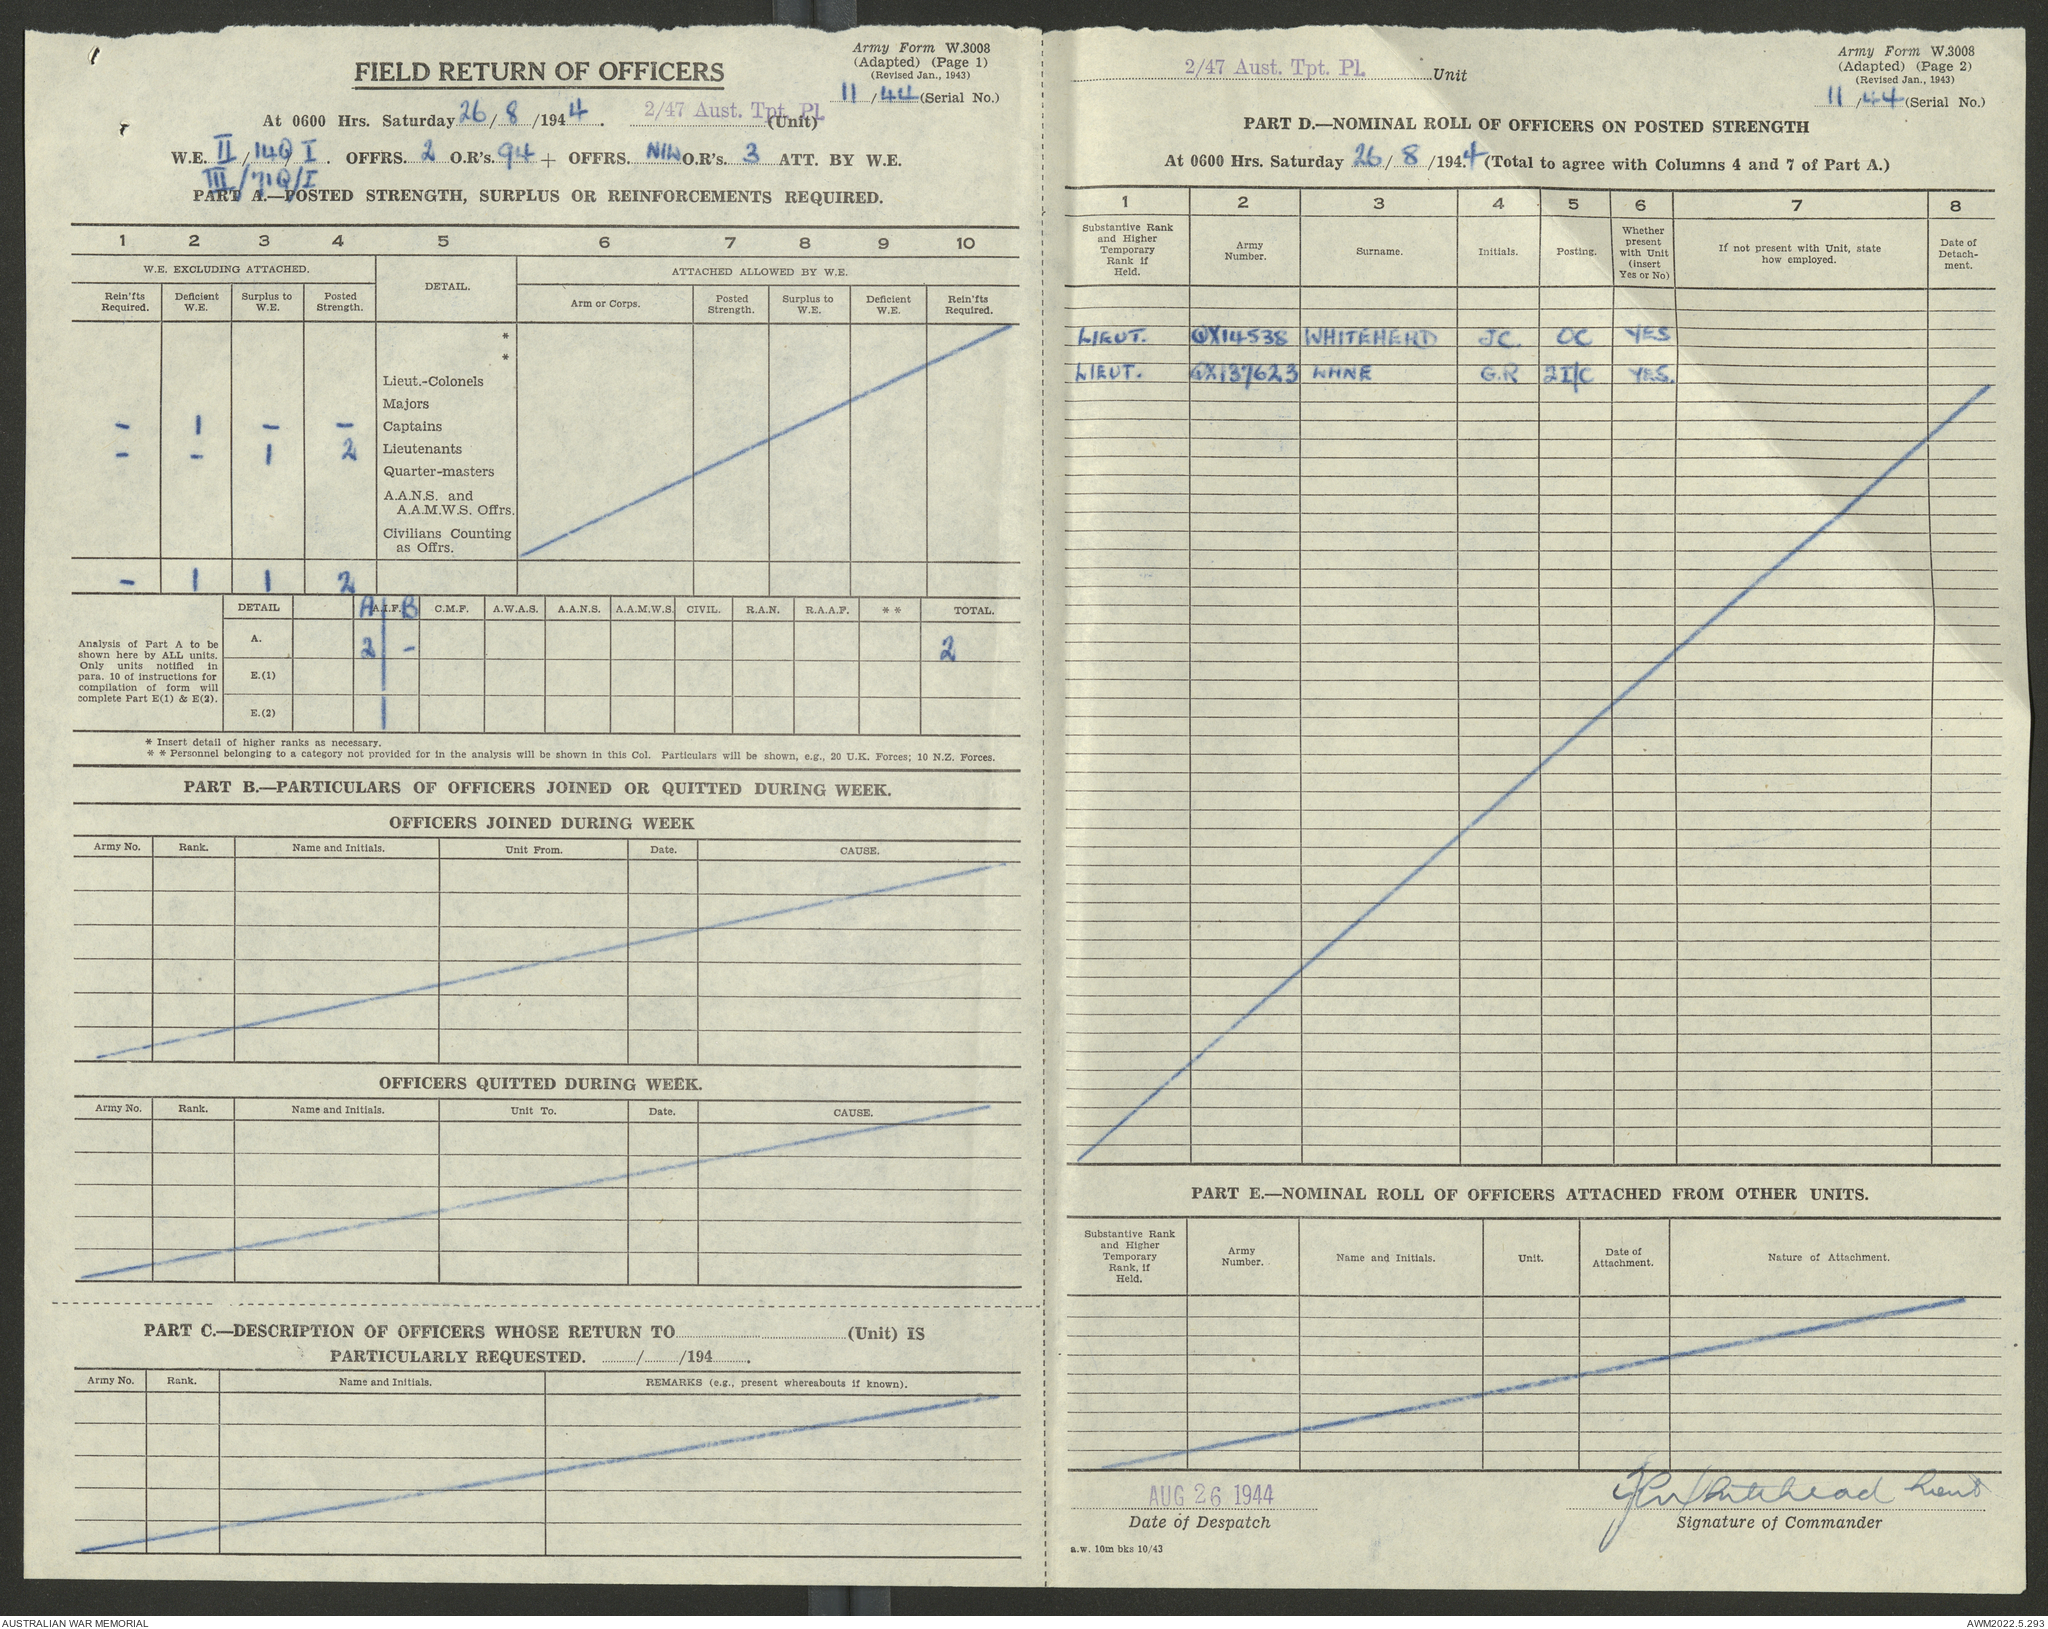 Army Form W.3008
(Adapted) (Page 1)
(Revised Jan., 1943)
11/44 (Serial No.)
FIELD RETURN OF OFFICERS
At 0600 Hrs. Saturday 26/8/1944. 2/47 Aust. Tpt. Pl. (Unit)
W.E. II/14Q/I. OFFRS. 2 O.R's. 94 + OFFRS. NIL O.R's. 3 ATT. BY W.E.
III/71Q/I
PART A.—POSTED STRENGTH, SURPLUS OR REINFORCEMENTS REQUIRED.
1 2 3 4 5 6 7 8 9 10
W.E. EXCLUDING ATTACHED. DETAIL. ATTACHED ALLOWED BY W.E.
Rein'fts Required. Deficient W.E. Surplus to W.E. Posted Strength. Arm or Corps. Posted Strength. Surplus to W.E. Deficient W.E. Rein'fts Required.
*
*
Lieut.-Colonels
Majors
- 1 - - Captains
- - 1 2 Lieutenants
Quarter-masters
A.A.N.S. and
A.A.M.W.S. Offrs.
Civilians Counting
as Offrs.
- 1 1 2
DETAIL A A.I.F. B C.M.F. A.W.A.S. A.A.N.S. A.A.M.W.S. CIVIL. R.A.N. R.A.A.F. * * TOTAL.
Analysis of Part A to be
shown here by ALL units.
Only units notified in
para. 10 of instructions for
compilation of form will
complete Part E(1) & E(2).
A. 2 - 2
E.(1)
E.(2)
* Insert detail of higher ranks as necessary.
* * Personnel belonging to a category not provided for in the analysis will be shown in this Col. Particulars will be shown, e.g., 20 U.K. Forces; 10 N.Z. Forces.
PART B.—PARTICULARS OF OFFICERS JOINED OR QUITTED DURING WEEK.
OFFICERS JOINED DURING WEEK
Army No. Rank. Name and Initials. Unit From. Date. CAUSE.
OFFICERS QUITTED DURING WEEK.
Army No. Rank. Name and Initials. Unit To. Date. CAUSE.
PART C.—DESCRIPTION OF OFFICERS WHOSE RETURN TO (Unit) IS
PARTICULARLY REQUESTED. / /194 .
Army No. Rank. Name and Initials. REMARKS (e.g., present whereabouts if known).
2/47 Aust. Tpt. Pl. Unit
Army Form W.3008
(Adapted) (Page 2)
(Revised Jan., 1943)
11/44 (Serial No.)
PART D.—NOMINAL ROLL OF OFFICERS ON POSTED STRENGTH
At 0600 Hrs. Saturday 26/8/1944 (Total to agree with Columns 4 and 7 of Part A.)
1 2 3 4 5 6 7 8
Substantive Rank and Higher Temporary Rank if Held. Army Number. Surname. Initials. Posting. Whether present with Unit (insert Yes or No) If not present with Unit, state how employed. Date of Detach-ment.
LIEUT. QX14538 WHITEHEAD JC OC YES
LIEUT. QX137623 G.R 2I/C YES.
PART E.—NOMINAL ROLL OF OFFICERS ATTACHED FROM OTHER UNITS.
Substantive Rank and Higher Temporary Rank, if Held. Army Number. Name and Initials. Unit. Date of Attachment. Nature of Attachment.
AUG 26 1944
Date of Despatch
JC Whitehead Lieut
Signature of Commander
a.w. 10m bks 10/43
AUSTRALIAN WAR MEMORIAL
AWM2022.5.293